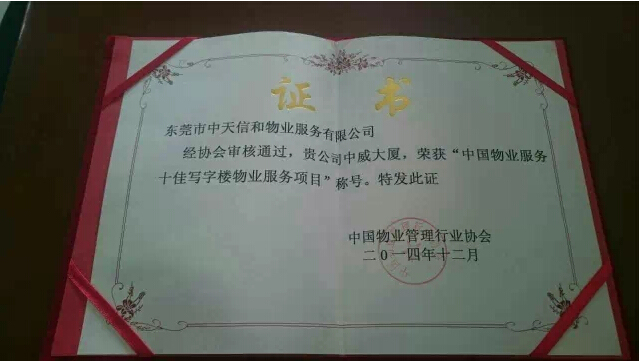 证 书
东莞市中天信和物业服务有限公司
经协会审核通过，贵公司中威大厦，荣获“中国物业服务
十佳写字楼物业服务项目”称号。特发此证
中国物业管理行业协会
二0一四年十二月